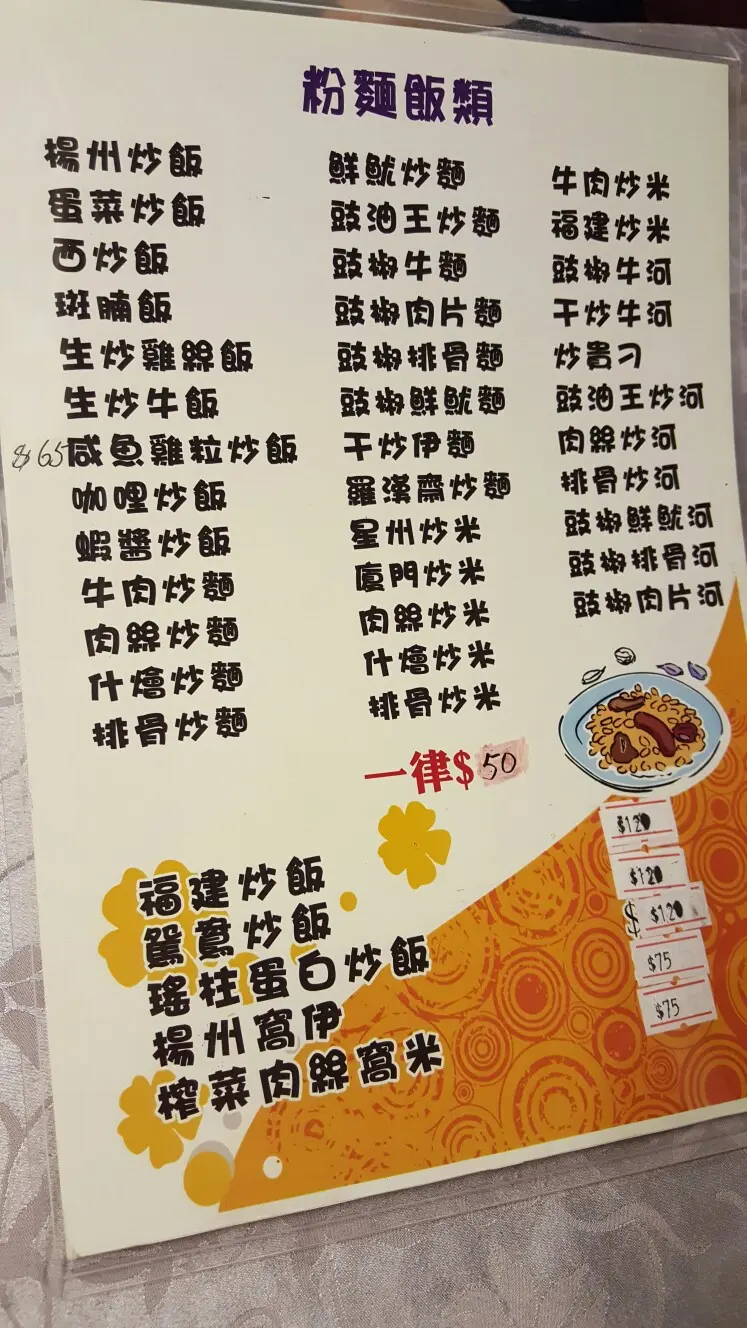 粉麵飯類
揚州炒飯
蛋菜炒飯
西炒飯
斑腩飯
生炒雞絲飯
生炒牛飯
$65 咸魚雞粒炒飯
咖哩炒飯
蝦醬炒飯
牛肉炒麵
肉絲炒麵
什燴炒麵
排骨炒麵
鮮魷炒麵
豉油王炒麵
豉椒牛麵
豉椒肉片麵
豉椒排骨麵
豉椒鮮魷麵
干炒伊麵
羅漢齋炒麵
星州炒米
廈門炒米
肉絲炒米
什燴炒米
排骨炒米
牛肉炒米
福建炒米
豉椒牛河
干炒牛河
炒貴刁
豉油王炒河
肉絲炒河
排骨炒河
豉椒鮮魷河
豉椒排骨河
豉椒肉片河
一律$50
福建炒飯 $120
鴛鴦炒飯 $120
瑤柱蛋白炒飯 $ $120
揚州窩伊 $75
榨菜肉絲窩米 $75